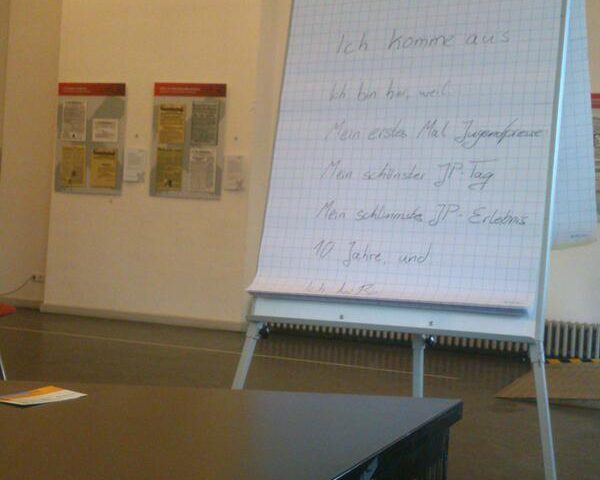 Ich komme aus
Ich bin hier, weil
Mein erstes Mal Jugendpresse
Mein schönster JP-Tag
Mein schlimmstes JP-Erlebnis
10 Jahre, und
Ich